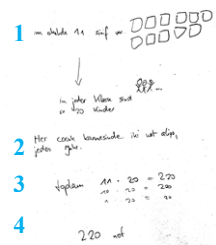 1 im okulda 11 sınıf var
in jeder Klasse sind
20 Kinder
2 Her cocuk karnesinde iki not alıp,
jeden
3 toplam 11 · 20 = 220
10 · 20 = 200
1 · 20 = 20
4 220 not